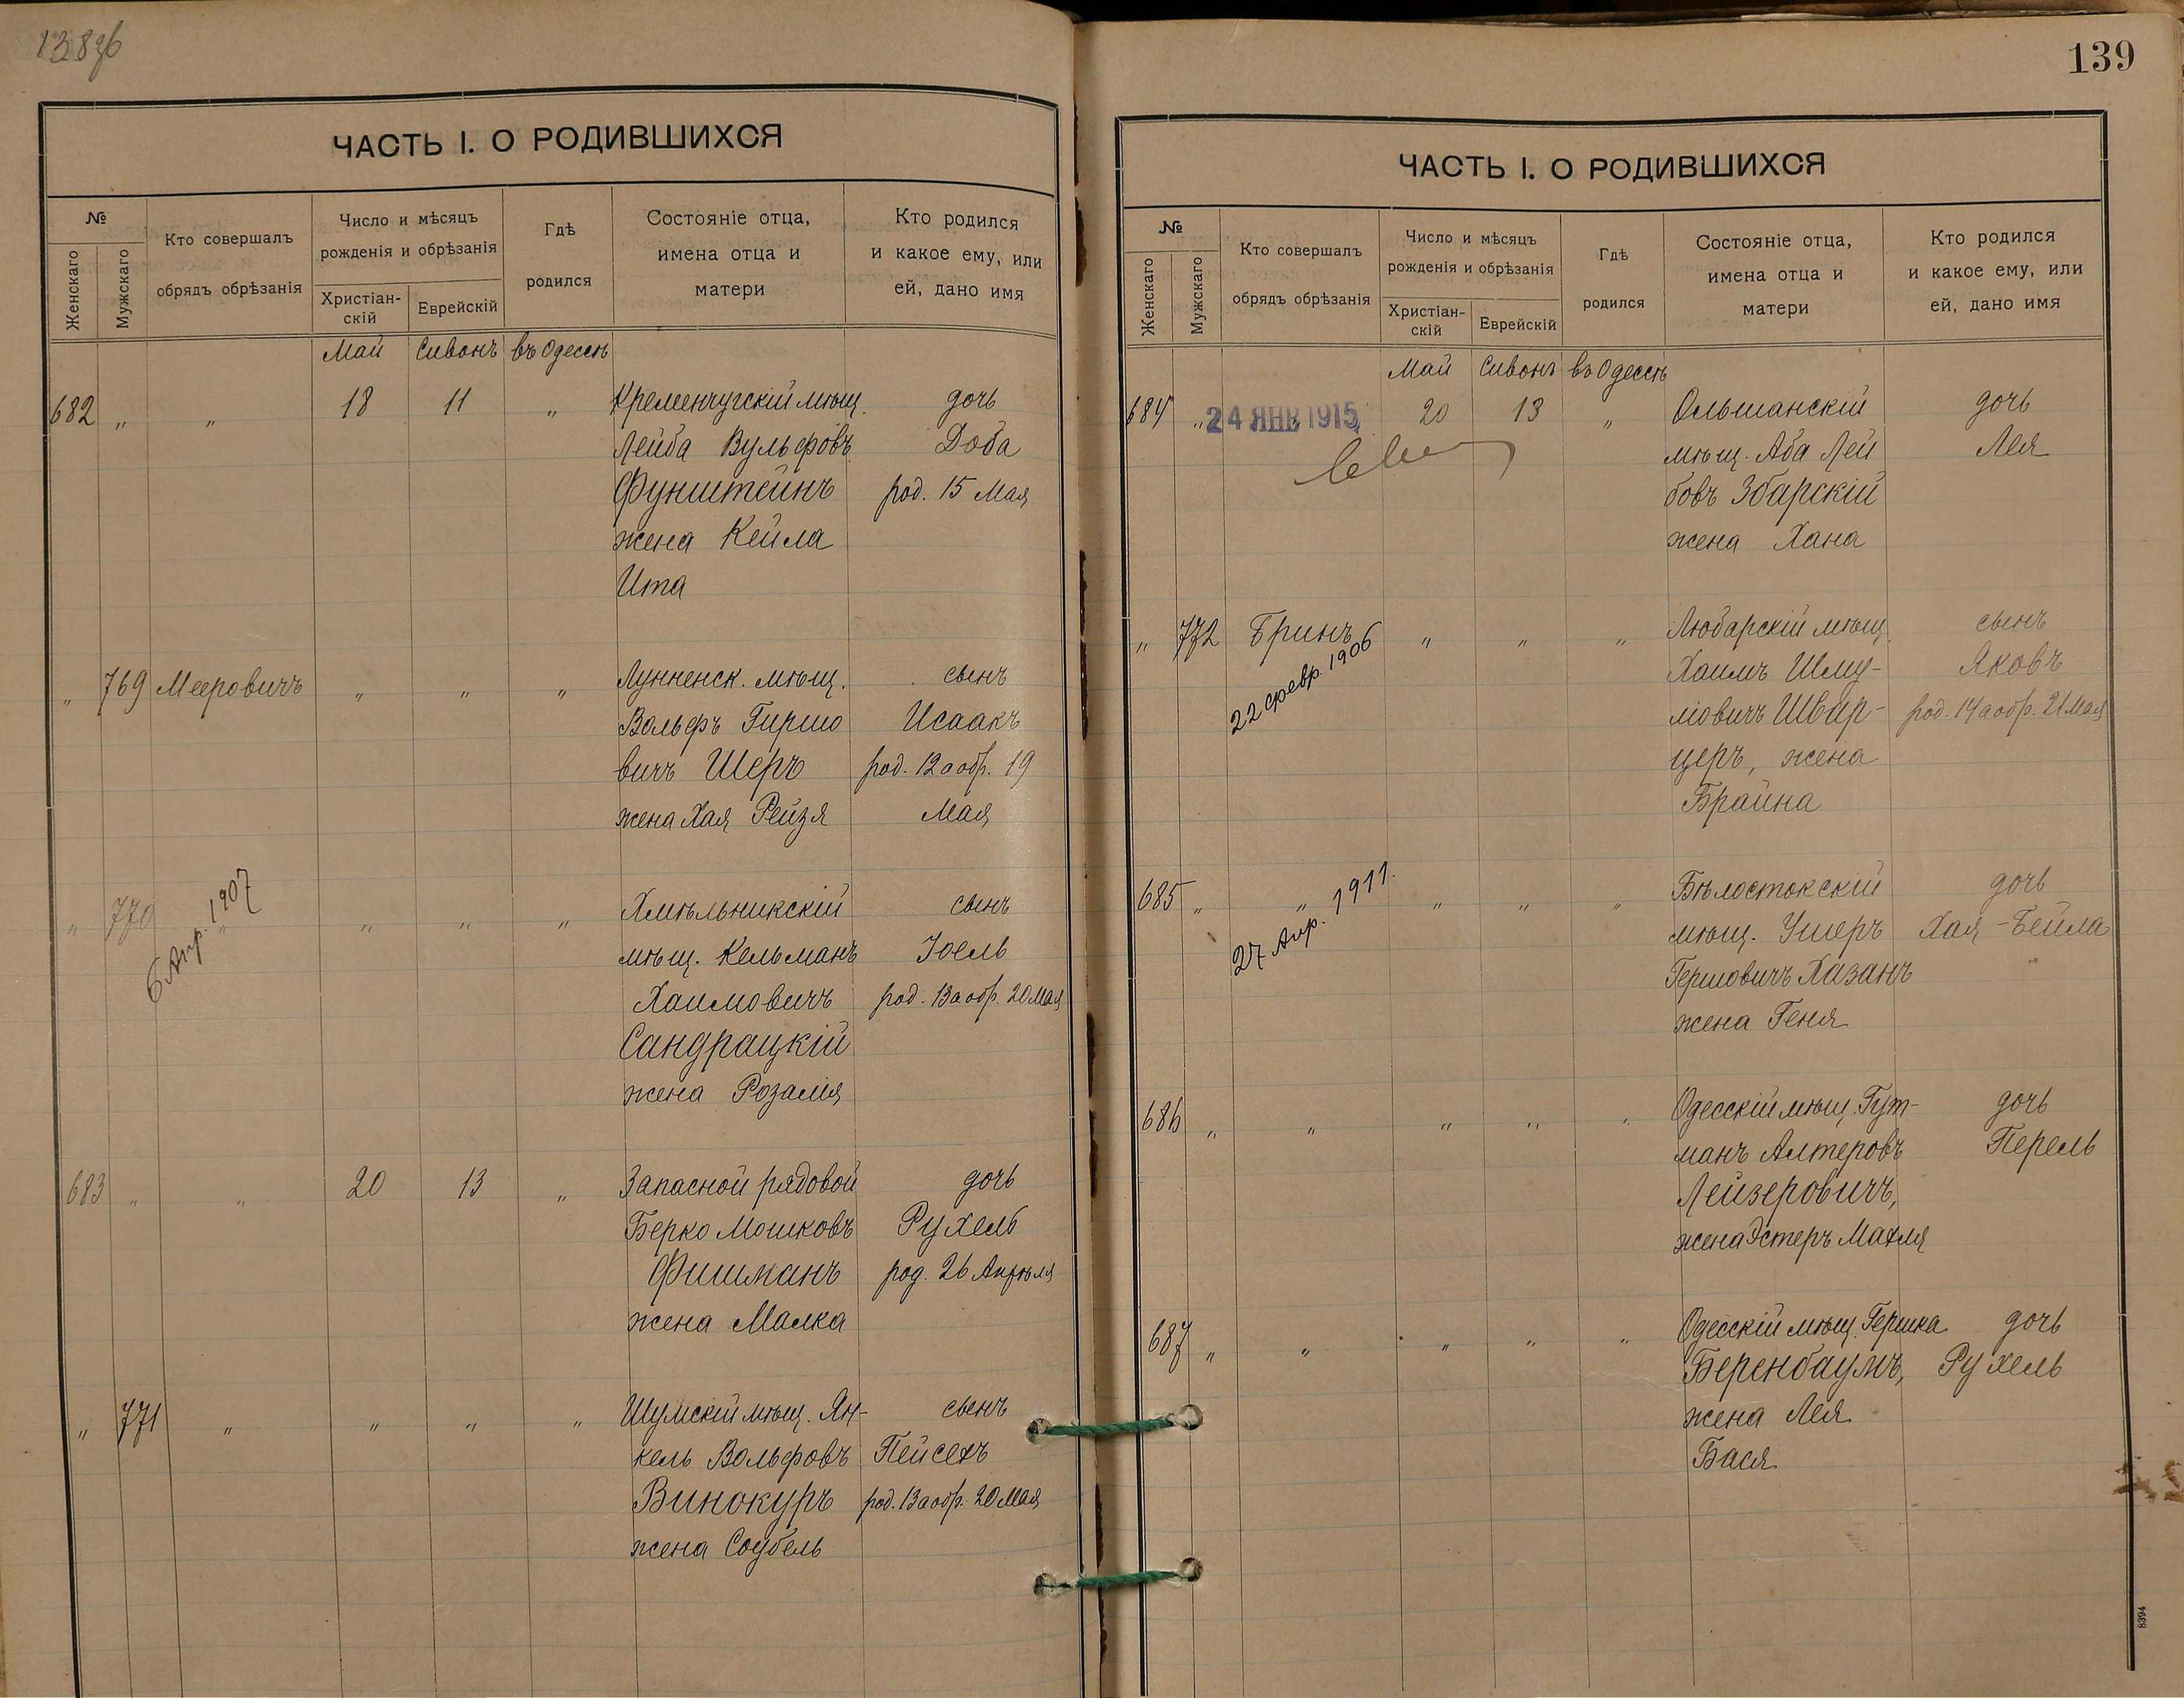 139
ЧАСТЬ I. О РОДИВШИХСЯ
№
Женскаго
Мужскаго
Кто совершалъ
обрядъ обрѣзанія
Число и мѣсяцъ
рожденія и обрѣзанія
Христіан-
скій
Еврейскій
Гдѣ
родился
Состояніе отца,
имена отца и
матери
Кто родился
и какое ему, или
ей, дано имя
Май Сивонъ въ Одессѣ
682 " " 18 11 " Кременчугскій мѣщ. дочь
Лейба Вульфовъ Доба
Фунштейнъ род. 15 Мая
жена Кейла
Ита
" 769 Мееровичъ " " " Лунненск. мѣщ. сынъ
Вольфъ Гиршо Исаакъ
вичъ Шеръ род. 12 а обр. 19
жена Хая Рейзя Мая
" 770 " " " " Хмѣльникскій сынъ
6 Апр. 1907
мѣщ. Кельманъ Іоель
Хаимовичъ род. 13 а обр. 20 Мая
Сандрацкій
жена Розалія
683 " " 20 13 " Запасной рядовой дочь
Берко Мошковъ Рухель
Фишманъ род. 26 Апрѣля
жена Малка
" 771 " " " " Шумскій мѣщ. Ян- сынъ
кель Вольфовъ Пейсехъ
Винокуръ род. 13 а обр. 20 Мая
жена
ЧАСТЬ I. О РОДИВШИХСЯ
№
Женскаго
Мужскаго
Кто совершалъ
обрядъ обрѣзанія
Число и мѣсяцъ
рожденія и обрѣзанія
Христіан-
скій
Еврейскій
Гдѣ
родился
Состояніе отца,
имена отца и
матери
Кто родился
и какое ему, или
ей, дано имя
Май Сивонъ въ Одессѣ
684 " 24 ЯНВ 1915 20 13 " Ольшанскій дочь
мѣщ. Аба Лей Лея
бовъ Збарскій
жена Хана
" 772 Бринъ " " " Любарскій мѣщ. сынъ
22 февр. 1906
Хаимъ Шму- Яковъ
ліовичъ Швар- род. 14 а обр. 21 Мая
церъ, жена
Брайна
685 " " " " " Бѣлостокскій дочь
27 Апр. 1911.
мѣщ. Ушеръ Хая-Бейла
Гершовичъ Хазанъ
жена Геня
686 " " " " " Одесскій мѣщ. Гут- дочь
манъ Алтеровъ Перель
Лейзеровичъ,
жена Эстеръ Махля
687 " " " " " Одесскій мѣщ. Гершка дочь
Беренбаумъ, Рухель
жена Лея
Бася
8394